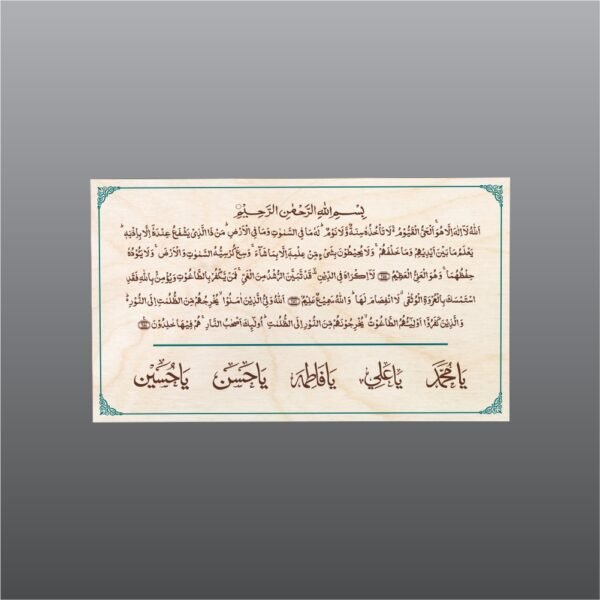 بِسْمِ اللهِ الرَّحْمٰنِ الرَّحِيْمِ
اَللهُ لَآ اِلٰهَ اِلَّا هُوَ ۚ اَلْحَيُّ الْقَيُّوْمُ ۚ لَا تَاْخُذُهٗ سِنَةٌ وَّلَا نَوْمٌ ؕ لَهٗ مَا فِي السَّمٰوٰتِ وَمَا فِي الْاَرْضِ ؕ مَنْ ذَا الَّذِيْ يَشْفَعُ عِنْدَهٗٓ اِلَّا بِاِذْنِهٖ ؕ
يَعْلَمُ مَا بَيْنَ اَيْدِيْهِمْ وَمَا خَلْفَهُمْ ۚ وَلَا يُحِيْطُوْنَ بِشَيْءٍ مِّنْ عِلْمِهٖٓ اِلَّا بِمَا شَآءَ ۚ وَسِعَ كُرْسِيُّهُ السَّمٰوٰتِ وَالْاَرْضَ ۚ وَلَا يَئُوْدُهٗ
حِفْظُهُمَا ۚ وَهُوَ الْعَلِيُّ الْعَظِيْمُ ﴿۲۵۵﴾ لَآ اِكْرَاهَ فِي الدِّيْنِ ۙ قَدْ تَّبَيَّنَ الرُّشْدُ مِنَ الْغَيِّ ۚ فَمَنْ يَّكْفُرْ بِالطَّاغُوْتِ وَيُؤْمِنْۢ بِاللهِ فَقَدِ
اسْتَمْسَكَ بِالْعُرْوَةِ الْوُثْقٰى ۗ لَا انْفِصَامَ لَهَا ؕ وَاللهُ سَمِيْعٌ عَلِيْمٌ ﴿۲۵۶﴾ اَللهُ وَلِيُّ الَّذِيْنَ اٰمَنُوْا ۙ يُخْرِجُهُمْ مِّنَ الظُّلُمٰتِ اِلَى النُّوْرِ ؕ
وَالَّذِيْنَ كَفَرُوْٓا اَوْلِيٰٓئُهُمُ الطَّاغُوْتُ ۙ يُخْرِجُوْنَهُمْ مِّنَ النُّوْرِ اِلَى الظُّلُمٰتِ ؕ اُولٰٓئِكَ اَصْحٰبُ النَّارِ ۚ هُمْ فِيْهَا خٰلِدُوْنَ ﴿۲۵۷﴾
يَا مُحَمَّد يَا عَلِي يَا فَاطِمَة يَا حَسَن يَا حُسَيْن